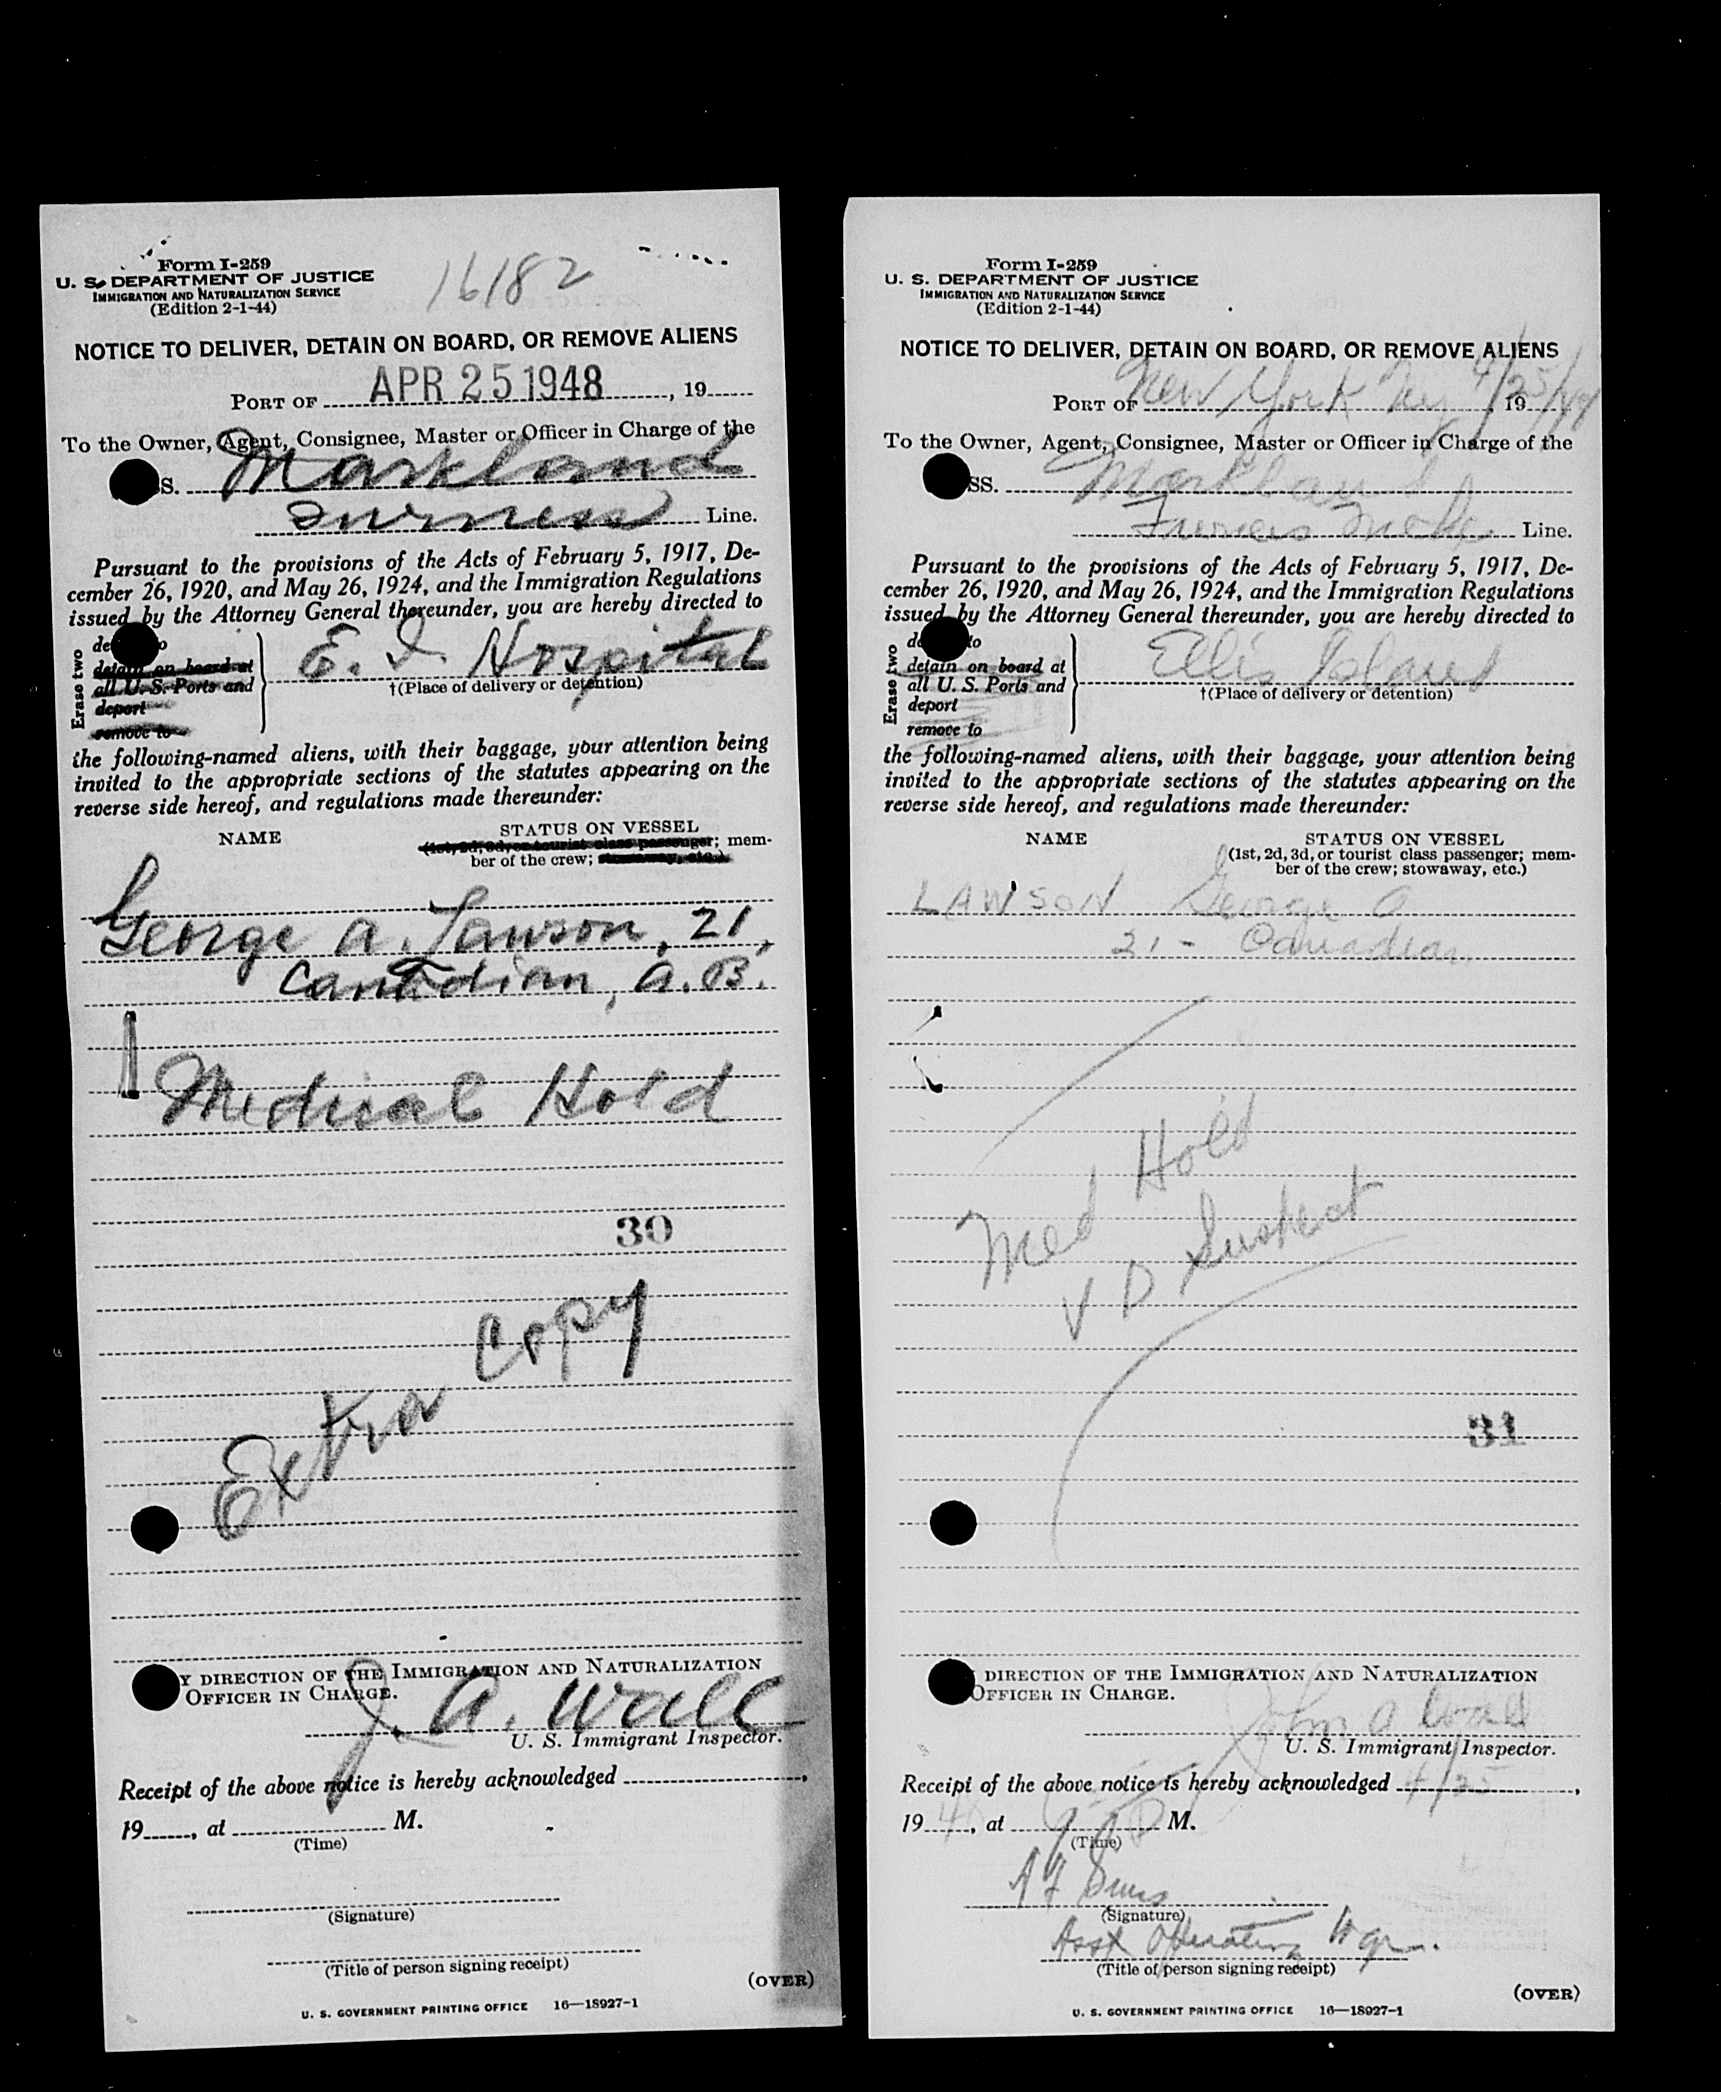 Form I-259
U. S. DEPARTMENT OF JUSTICE
IMMIGRATION AND NATURALIZATION SERVICE
(Edition 2-1-44)
16182
NOTICE TO DELIVER, DETAIN ON BOARD, OR REMOVE ALIENS
PORT OF APR 25 1948, 19
To the Owner, Agent, Consignee, Master or Officer in Charge of the
S. Markland
Furness Line.
Pursuant to the provisions of the Acts of February 5, 1917, De-
cember 26, 1920, and May 26, 1924, and the Immigration Regulations
issued by the Attorney General thereunder, you are hereby directed to
Erase two
de o
detain on board at
all U. S. Ports and
deport
remove to
E. I. Hospital
†(Place of delivery or detention)
the following-named aliens, with their baggage, your attention being
invited to the appropriate sections of the statutes appearing on the
reverse side hereof, and regulations made thereunder:
NAME STATUS ON VESSEL
(1st, 2d, 3d, or tourist class passenger; mem-
ber of the crew; stowaway, etc.)
George A. Lawson, 21,
Canadian, A.B.
Medical Hold
30
Extra Copy
Y DIRECTION OF THE IMMIGRATION AND NATURALIZATION
OFFICER IN CHARGE.
J. A. Wall
U. S. Immigrant Inspector.
Receipt of the above notice is hereby acknowledged ,
19 , at M.
(Time)
(Signature)
(Title of person signing receipt)
(OVER)
U. S. GOVERNMENT PRINTING OFFICE 16—18927-1
Form I-259
U. S. DEPARTMENT OF JUSTICE
IMMIGRATION AND NATURALIZATION SERVICE
(Edition 2-1-44)
NOTICE TO DELIVER, DETAIN ON BOARD, OR REMOVE ALIENS
PORT OF New York NY 4/25/48, 19
To the Owner, Agent, Consignee, Master or Officer in Charge of the
SS. Markland
Furness Line.
Pursuant to the provisions of the Acts of February 5, 1917, De-
cember 26, 1920, and May 26, 1924, and the Immigration Regulations
issued by the Attorney General thereunder, you are hereby directed to
Erase two
de to
detain on board at
all U. S. Ports and
deport
remove to
Ellis Island
†(Place of delivery or detention)
the following-named aliens, with their baggage, your attention being
invited to the appropriate sections of the statutes appearing on the
reverse side hereof, and regulations made thereunder:
NAME STATUS ON VESSEL
(1st, 2d, 3d, or tourist class passenger; mem-
ber of the crew; stowaway, etc.)
LAWSON George A
21 - Canadian
Med Hold
V D Suspect
31
DIRECTION OF THE IMMIGRATION AND NATURALIZATION
OFFICER IN CHARGE.
John A Wall
U. S. Immigrant Inspector.
Receipt of the above notice is hereby acknowledged 4/25,
19 48, at M.
(Time)
(Signature)
Asst Operating Mgr.
(Title of person signing receipt)
(OVER)
U. S. GOVERNMENT PRINTING OFFICE 16—18927-1